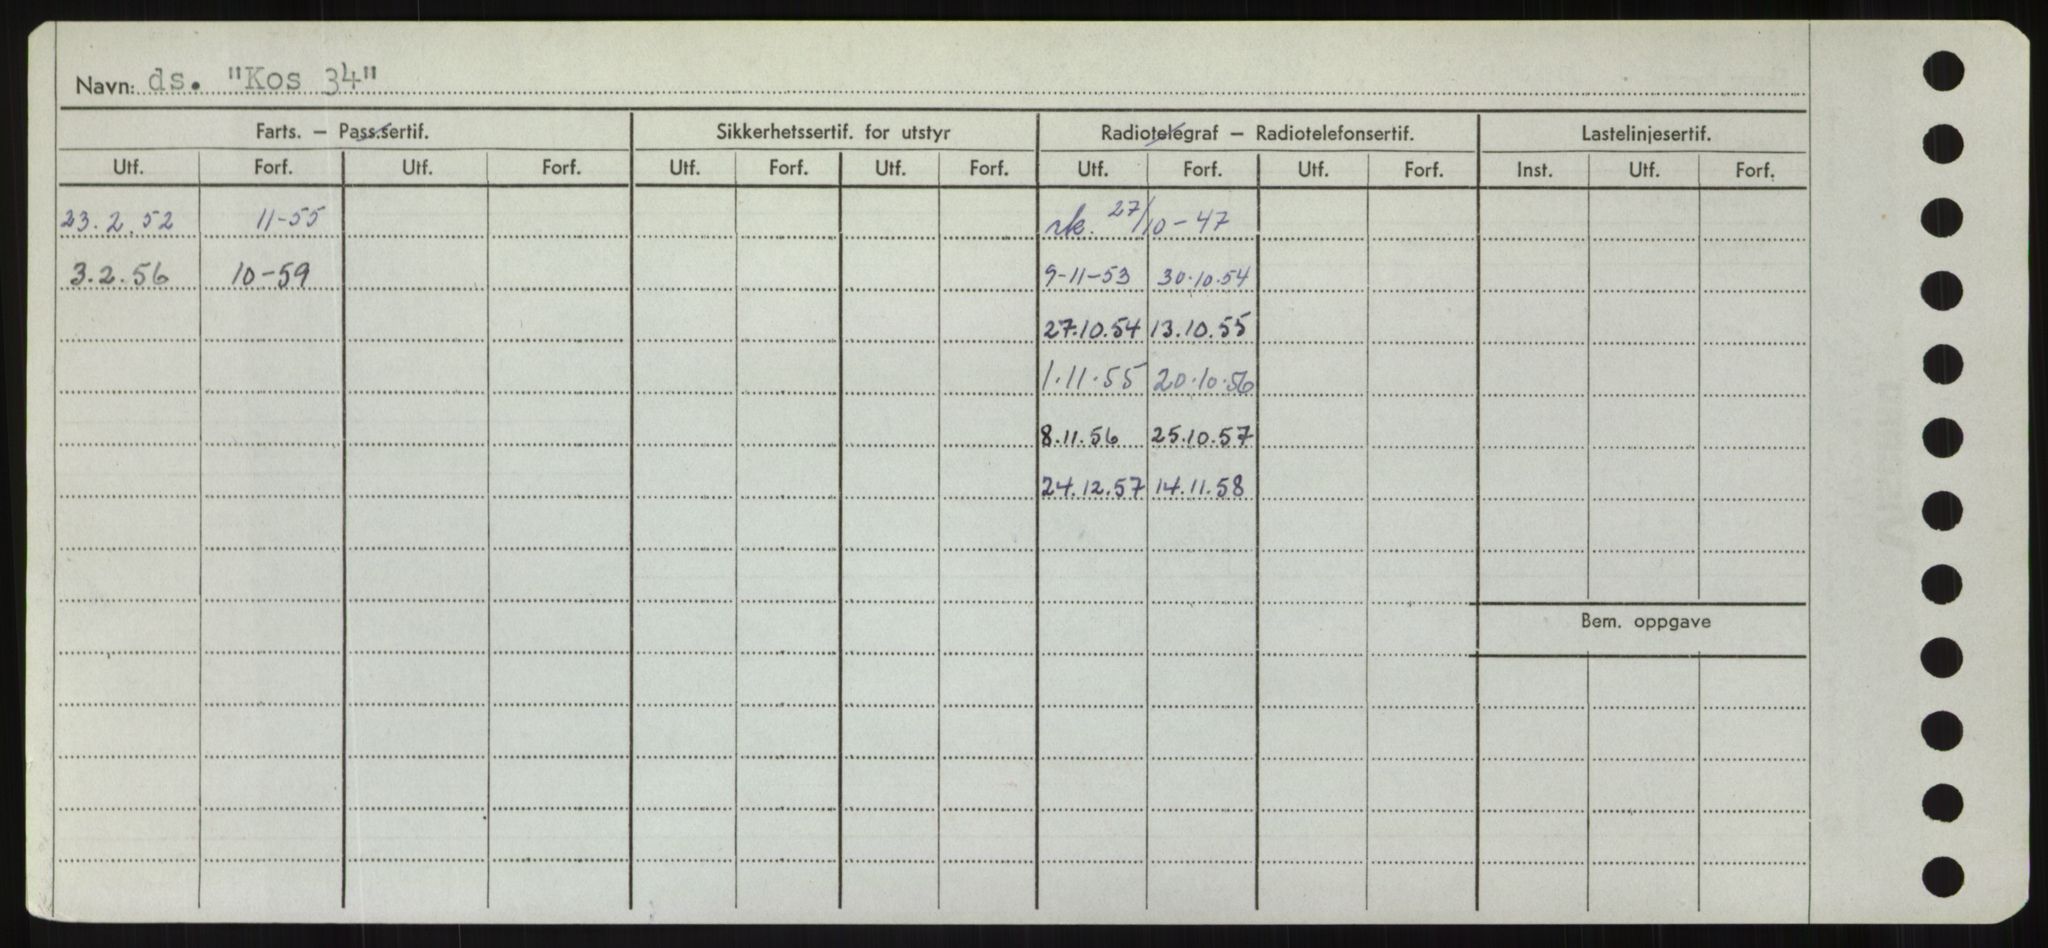 Navn: ds. "Kos 34"
Farts. – Pass.sertif. Sikkerhetssertif. for utstyr Radiotelegraf – Radiotelefonsertif. Lastelinjesertif.
Utf. Forf. Utf. Forf. Utf. Forf. Utf. Forf. Utf. Forf. Utf. Forf. Inst. Utf. Forf.
23.2.52 11-55 rk. 27/10-47
3.2.56 10-59 9-11-53 30.10.54
27.10.54 13.10.55
1.11.55 20.10.56
8.11.56 25.10.57
24.12.57 14.11.58
Bem. oppgave